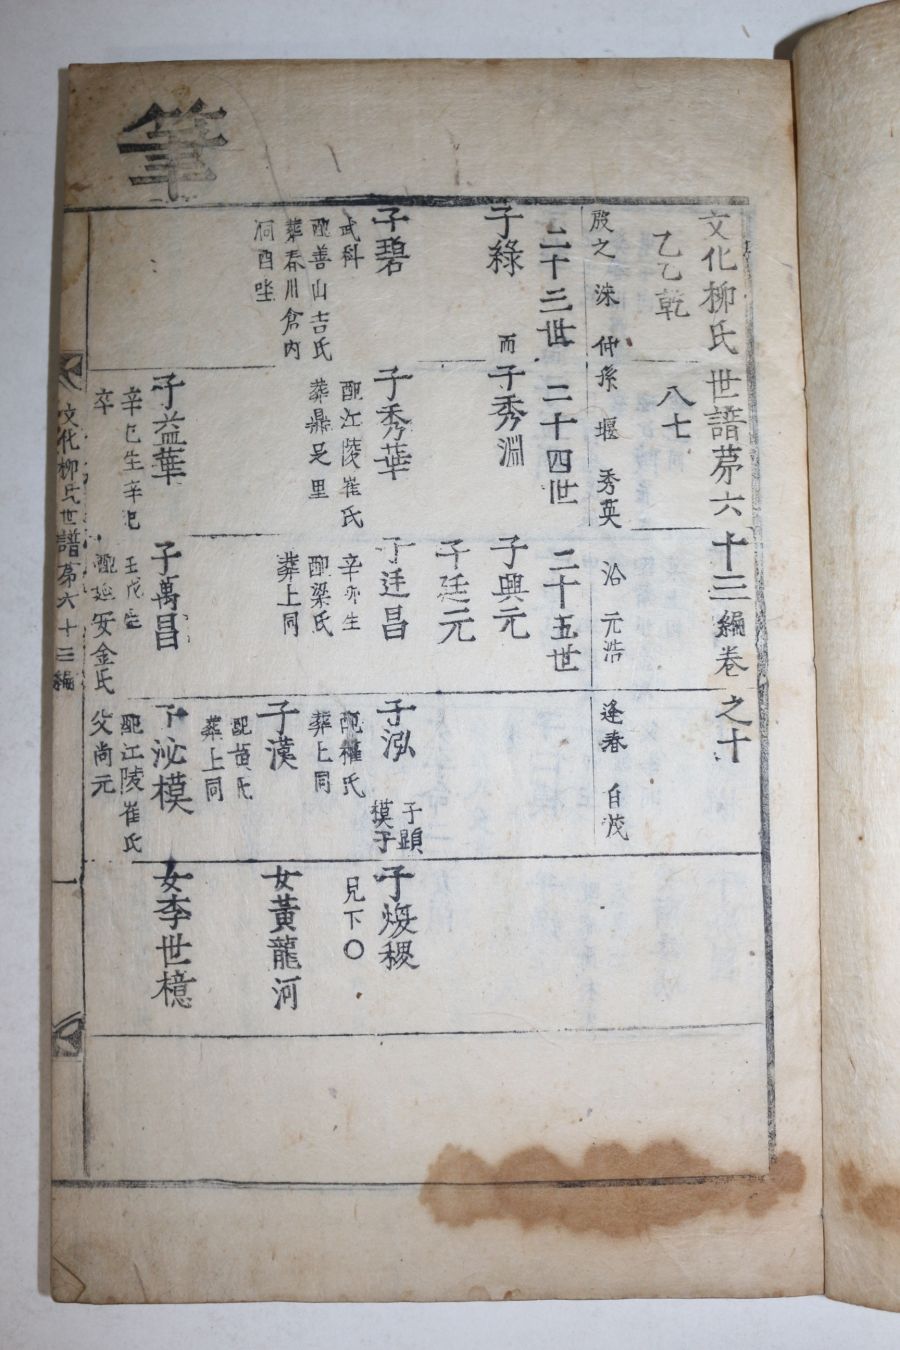 筆
文化柳氏世譜第六十三編卷之十
乙乙乾
八七
殷之 洙 仲孫 堰 秀英 沿 元浩 逢春 自茂
二十三世 二十四世 二十五世
子綠 而
子秀淵
子興元
子廷元
子碧
武科
配善山吉氏
葬春川倉內
洞酉坐
子秀華
配江陵崔氏
葬鼎足里
子廷昌
辛卯生
配梁氏
葬上同
子泓
子顯
模子
配權氏
葬上同
子漢
配黃氏
葬上同
子煖稷
兄下〇
女黃龍河
子益華
辛巳生辛巳
卒
子萬昌
壬戌生
配延安金氏
子泌模
配江陵崔氏
父尚元
女李世檍
文化柳氏世譜第六十三編
一